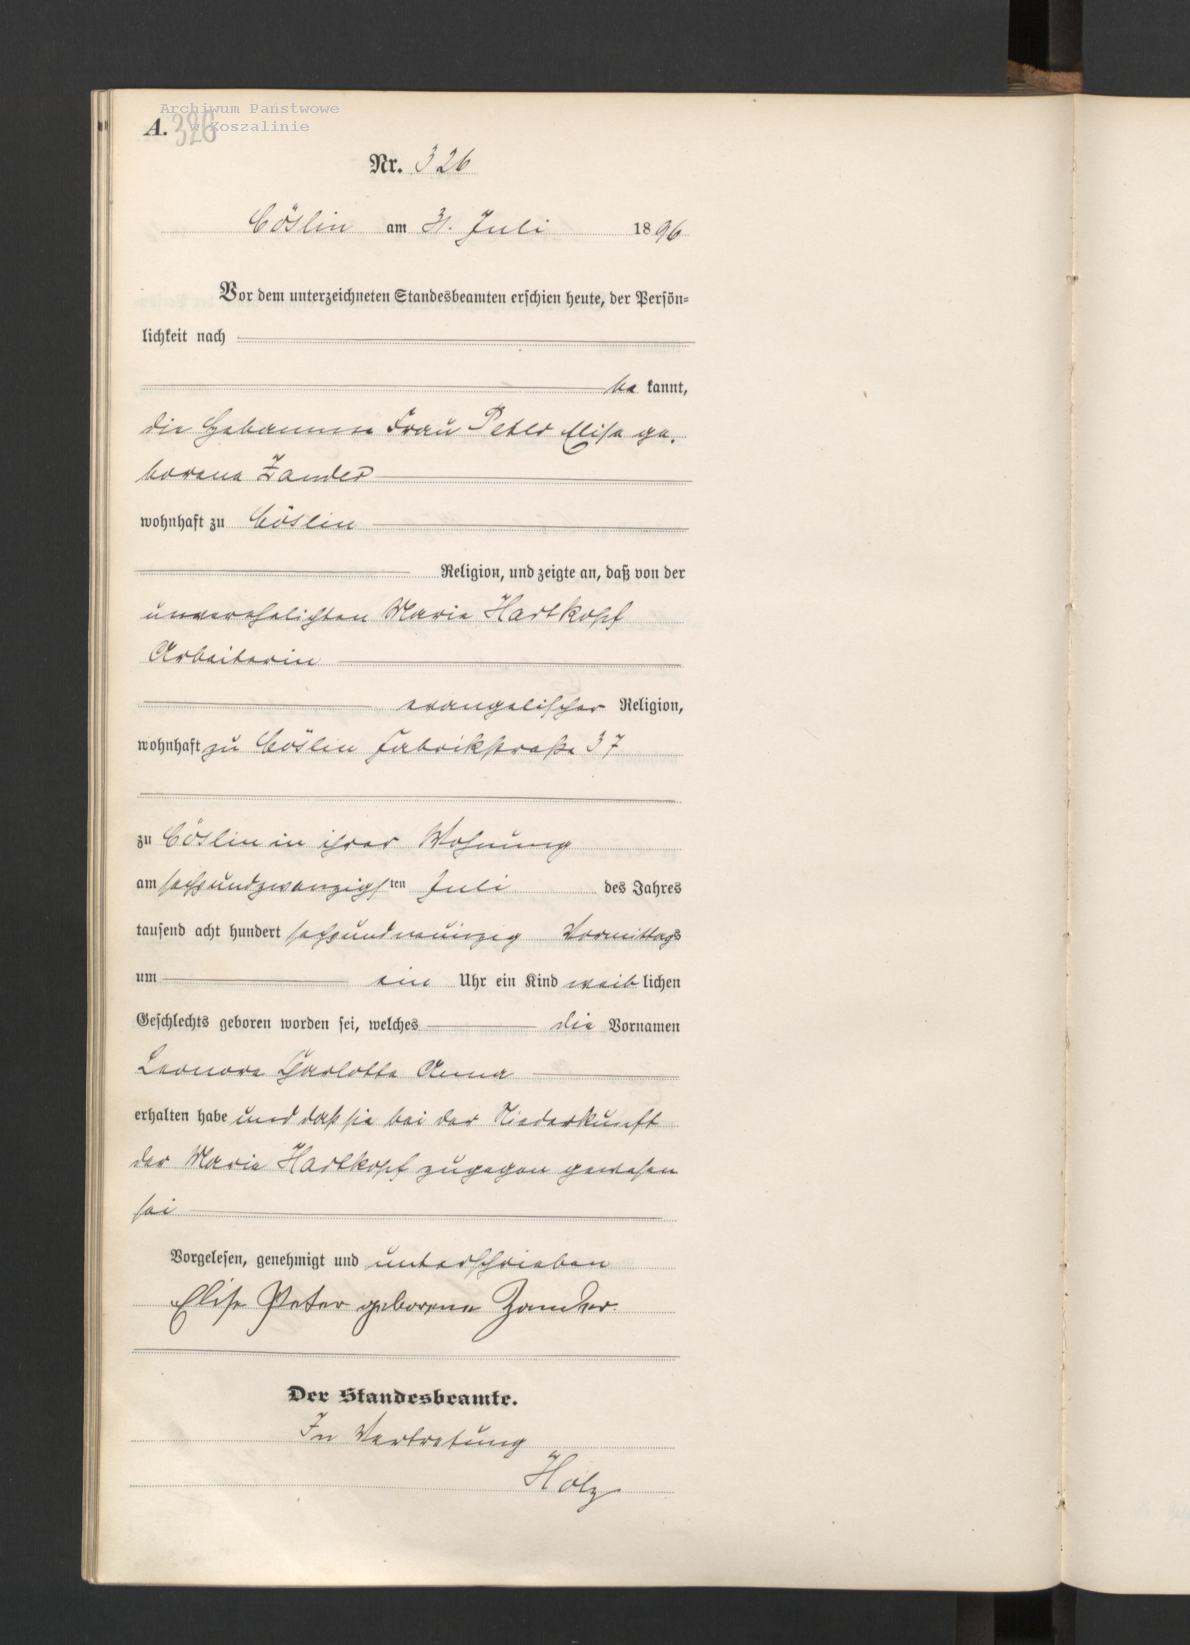 Archiwum Państwowe
w Koszalinie
A. 326
Nr. 326
Cöslin am 31. Juli 1896
Vor dem unterzeichneten Standesbeamten erschien heute, der Persön=
lichkeit nach
be kannt,
die Hebamme Frau Peter Elise ge,
borene Zander
wohnhaft zu Cöslin
Religion, und zeigte an, daß von der
unverehelichten Marie Hartkopf
Arbeiterin
evangelischer Religion,
wohnhaft zu Cöslin Fabrikstraße 37
zu Cöslin in ihrer Wohnung
am sechsundzwanzigsten Juli des Jahres
tausend acht hundert sechsundneunzig Vormittags
um ein Uhr ein Kind weiblichen
Geschlechts geboren worden sei, welches die Vornamen
Leonore Charlotte Anna
erhalten habe und daß sie bei der Niederkunft
der Marie Hartkopf zugegen gewesen
sei
Vorgelesen, genehmigt und unterschrieben
Elise Peter geborene Zander
Der Standesbeamte.
In Vertretung
Holz